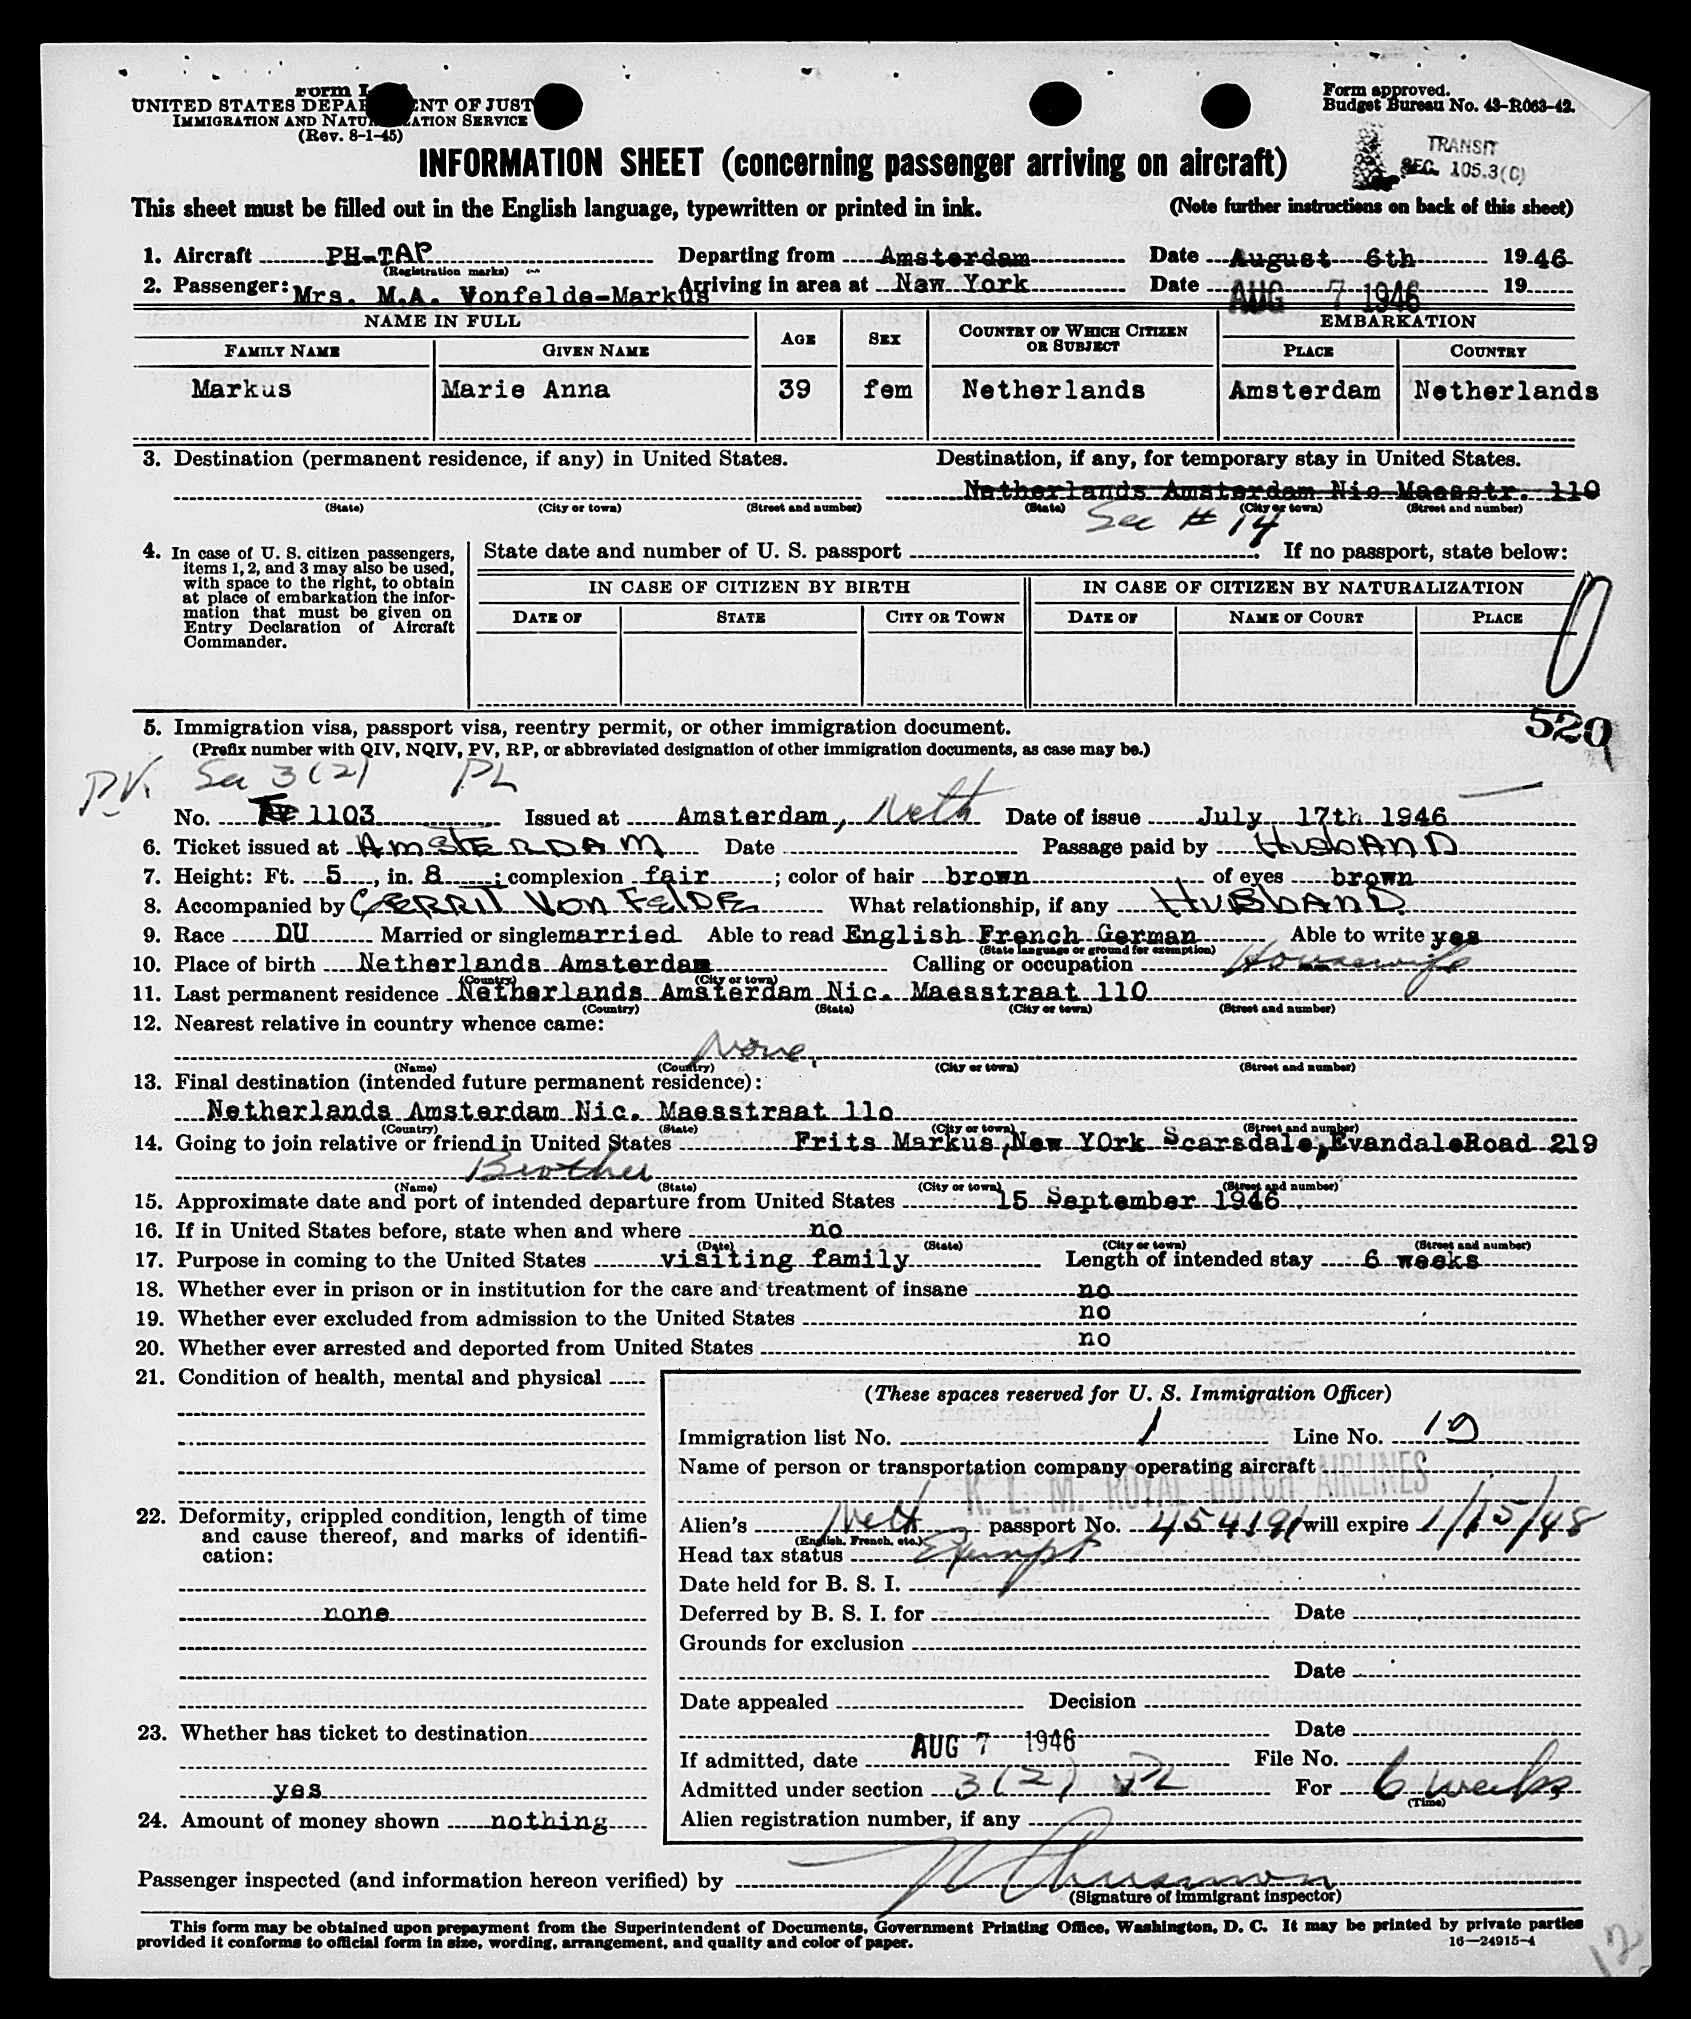 UNITED STATES DEPARTMENT OF JUST
IMMIGRATION AND NATURALIZATION SERVICE
(Rev. 8-1-45)
Form approved.
Budget Bureau No. 43-R063-42.
TRANSIT
SEC. 105.3(C)
INFORMATION SHEET (concerning passenger arriving on aircraft)
This sheet must be filled out in the English language, typewritten or printed in ink. (Note further instructions on back of this sheet)
1. Aircraft PH-TAP Departing from Amsterdam Date August 6th 1946
(Registration marks)
2. Passenger: Mrs. M.A. Vonfelde-Markus Arriving in area at New York Date AUG 7 1946 19
NAME IN FULL AGE SEX COUNTRY OF WHICH CITIZEN OR SUBJECT EMBARKATION
FAMILY NAME GIVEN NAME PLACE COUNTRY
Markus Marie Anna 39 fem Netherlands Amsterdam Netherlands
3. Destination (permanent residence, if any) in United States. Destination, if any, for temporary stay in United States.
Netherlands Amsterdam Nic Maesstr. 110
(State) (City or town) (Street and number) (State) (City or town) (Street and number)
See # 14
4. In case of U. S. citizen passengers, items 1, 2, and 3 may also be used, with space to the right, to obtain at place of embarkation the information that must be given on Entry Declaration of Aircraft Commander.
State date and number of U. S. passport . If no passport, state below:
IN CASE OF CITIZEN BY BIRTH IN CASE OF CITIZEN BY NATURALIZATION
DATE OF STATE CITY OR TOWN DATE OF NAME OF COURT PLACE
0
520
5. Immigration visa, passport visa, reentry permit, or other immigration document.
(Prefix number with QIV, NQIV, PV, RP, or abbreviated designation of other immigration documents, as case may be.)
PV. Sec 3(2) PL
No. 1103 Issued at Amsterdam, Neth Date of issue July 17th 1946
6. Ticket issued at AMSTERDAM Date Passage paid by HUSbAND
7. Height: Ft. 5, in. 8; complexion fair; color of hair brown of eyes brown
8. Accompanied by GERRIT VON FELDE What relationship, if any HUSbAND
9. Race DU Married or single married Able to read English French German Able to write yes
(State language or ground for exemption)
10. Place of birth Netherlands Amsterdam Calling or occupation Housewife
(Country) (City or town)
11. Last permanent residence Netherlands Amsterdam Nic. Maesstraat 110
(Country) (State) (City or town) (Street and number)
12. Nearest relative in country whence came:
None.
(Name) (Country) (City or town) (Street and number)
13. Final destination (intended future permanent residence):
Netherlands Amsterdam Nic. Maesstraat 11o
(Country) (State) (City or town) (Street and number)
14. Going to join relative or friend in United States Frits Markus, New YOrk Scarsdale, EvandaleRoad 219
Brother
(Name) (State) (City or town) (Street and number)
15. Approximate date and port of intended departure from United States 15 September 1946
16. If in United States before, state when and where no
(Date) (State) (City or town) (Street and number)
17. Purpose in coming to the United States visiting family Length of intended stay 6 weeks
18. Whether ever in prison or in institution for the care and treatment of insane no
19. Whether ever excluded from admission to the United States no
20. Whether ever arrested and deported from United States no
21. Condition of health, mental and physical
22. Deformity, crippled condition, length of time and cause thereof, and marks of identification:
none
23. Whether has ticket to destination
yes
24. Amount of money shown nothing
(These spaces reserved for U. S. Immigration Officer)
Immigration list No. 1 Line No. 19
Name of person or transportation company operating aircraft
K. L. M. ROYAL DUTCH AIRLINES
Alien's Neth passport No. 454191 will expire 1/15/48
(English, French, etc.)
Head tax status Exempt
Date held for B. S. I.
Deferred by B. S. I. for Date
Grounds for exclusion
Date
Date appealed Decision
Date
If admitted, date AUG 7 1946 File No.
Admitted under section 3(2) PL For 6 weeks
(Time)
Alien registration number, if any
Passenger inspected (and information hereon verified) by
(Signature of immigrant inspector)
This form may be obtained upon prepayment from the Superintendent of Documents, Government Printing Office, Washington, D. C. It may be printed by private parties
provided it conforms to official form in size, wording, arrangement, and quality and color of paper. 16—24915-4
12